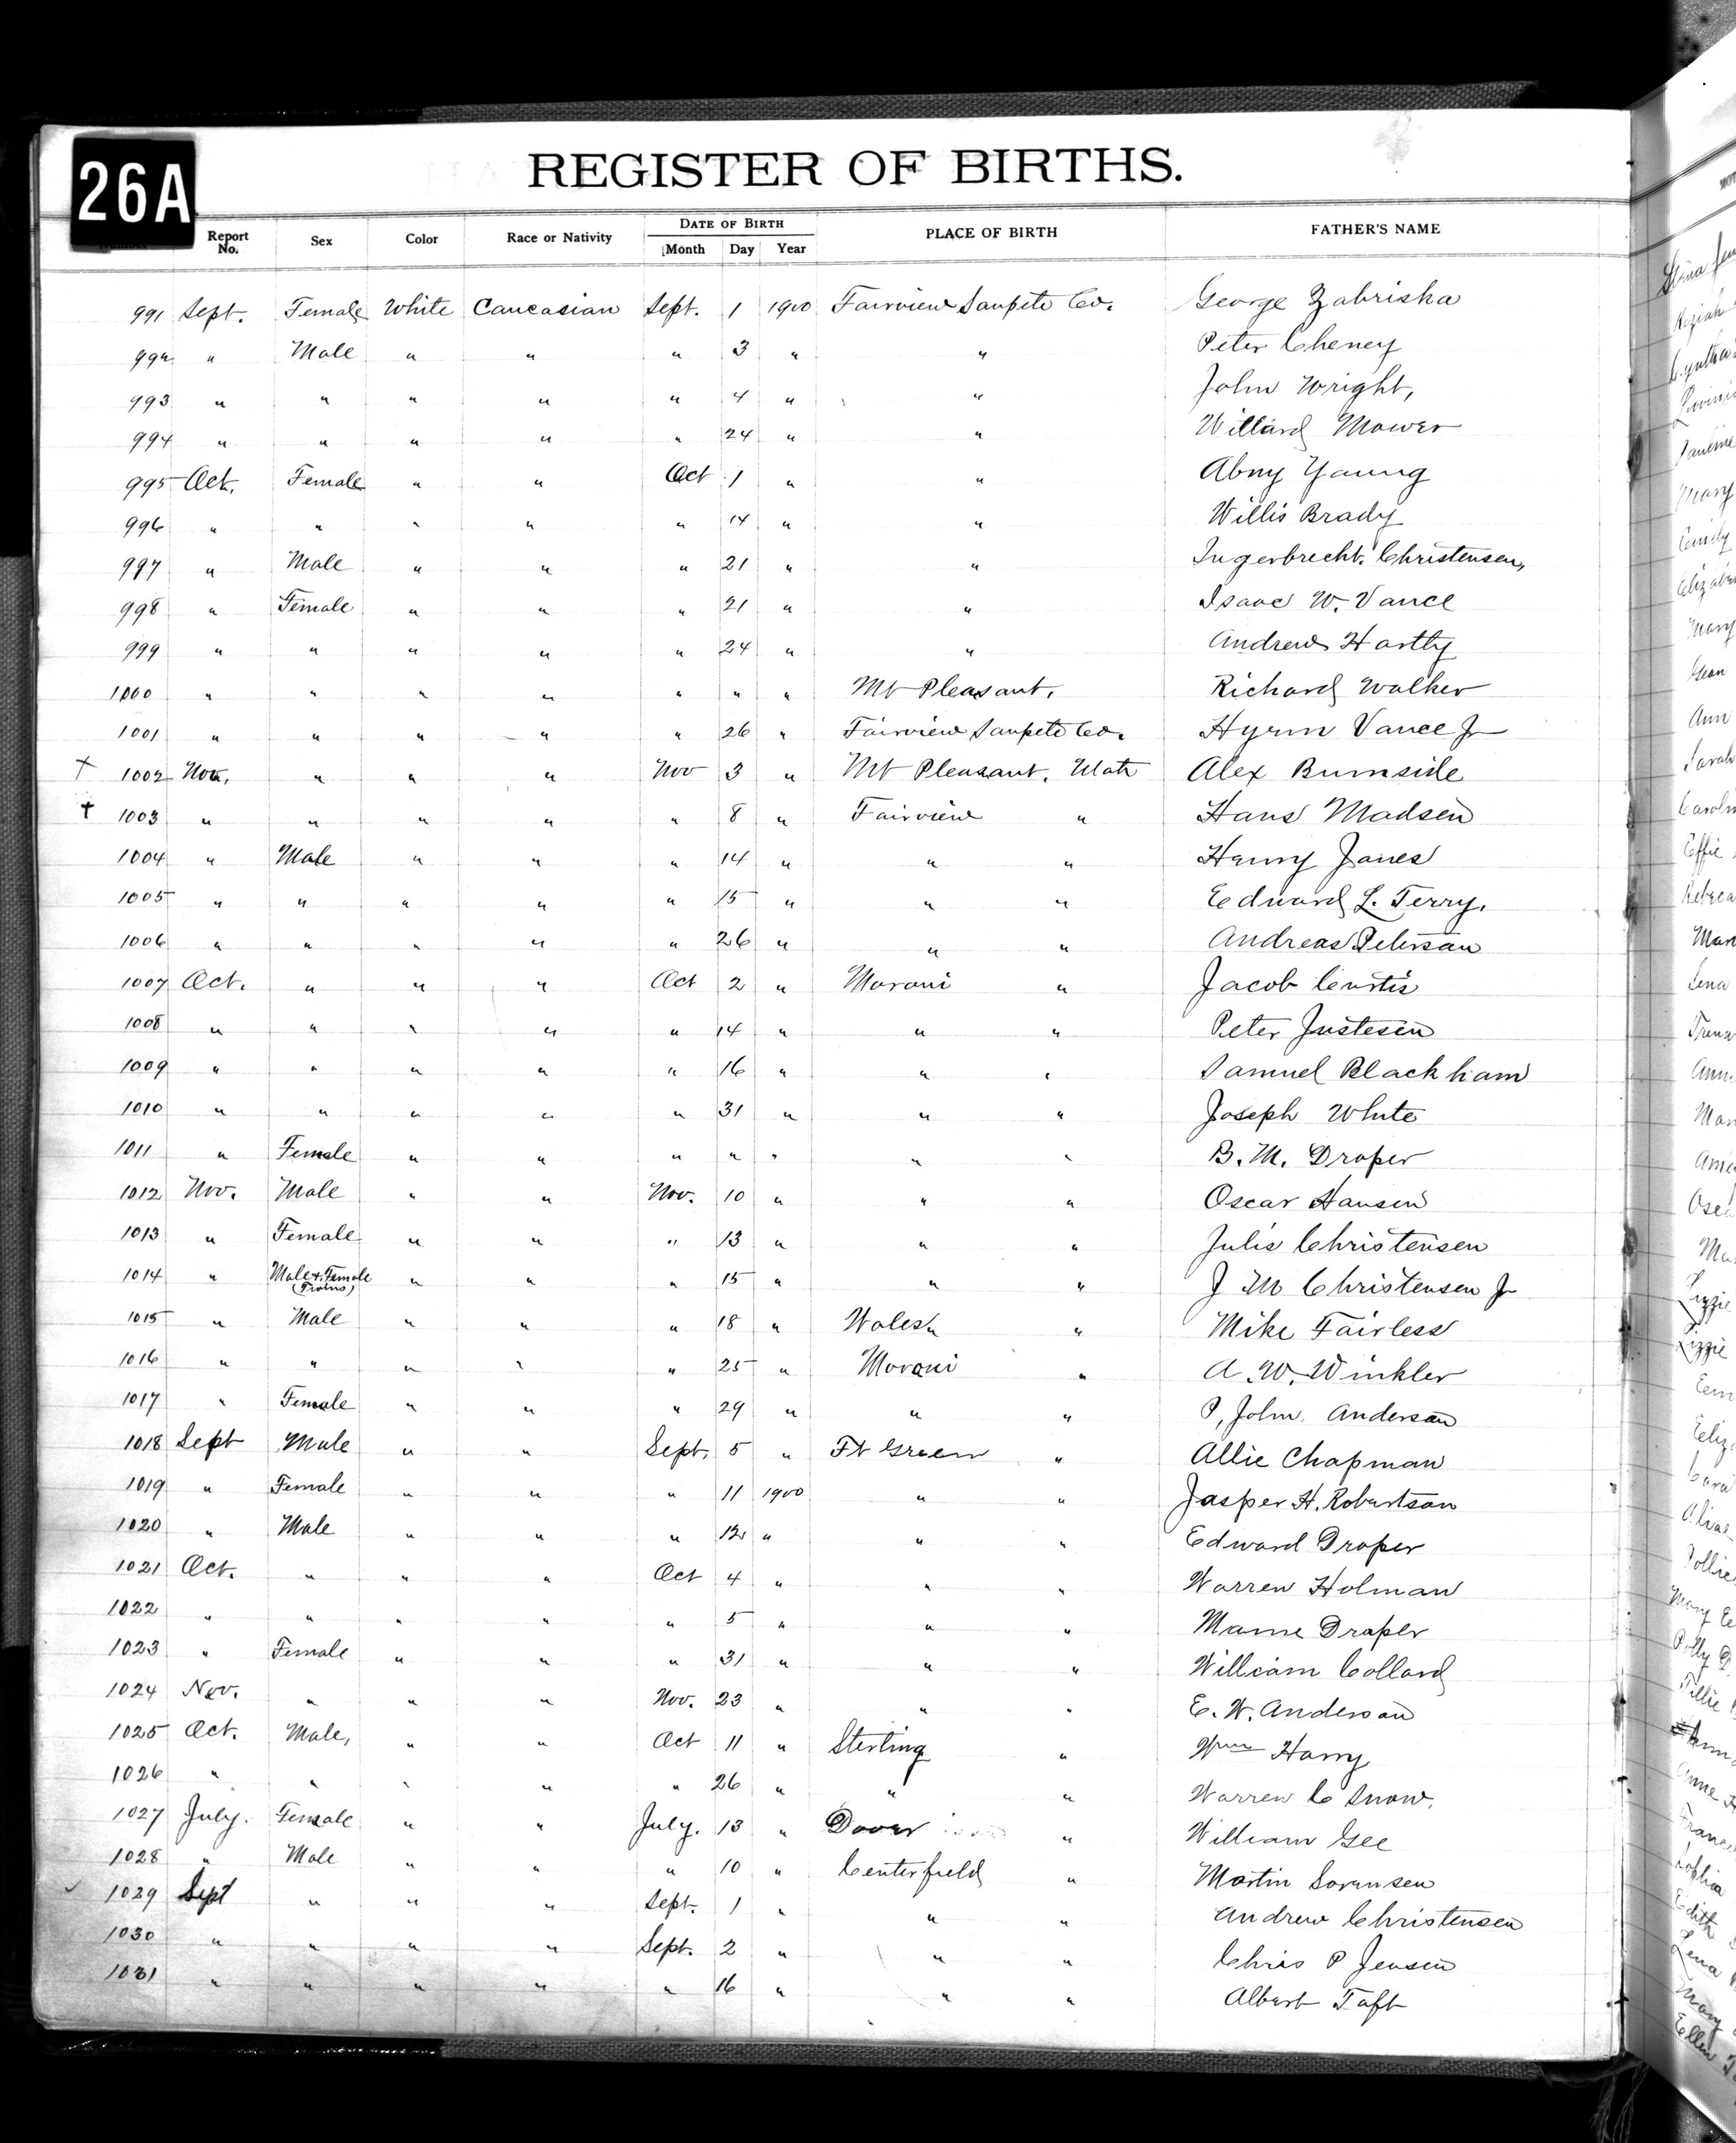 26A
REGISTER OF BIRTHS.
Report No. Sex Color Race or Nativity DATE OF BIRTH Month Day Year PLACE OF BIRTH FATHER'S NAME
991 Sept. Female White Caucasian Sept. 1 1900 Fairview Sanpete Co. George Zabriska
992 " Male " " " 3 " " Peter Cheney
993 " " " " " 4 " " John Wright,
994 " " " " " 24 " " Willard Mower
995 Oct. Female " " Oct 1 " " Abny Young
996 " " " " " 14 " " Willis Brady
997 " Male " " " 21 " " Ingerbrecht. Christensen,
998 " Female " " " 21 " " Isaac W. Vance
999 " " " " " 24 " " Andrew Hartly
1000 " " " " " " " Mt Pleasant, Richard Walker
1001 " " " " " 26 " Fairview Sanpete Co. Hyrm Vance Jr
† 1002 Nov. " " " Nov 3 " Mt Pleasant. Utah Alex Burnside
† 1003 " " " " " 8 " Fairview " Hans Madsen
1004 " Male " " " 14 " " " Henry Jones
1005 " " " " " 15 " " " Edward L. Terry.
1006 " " " " " 26 " " " Andreas Peterson
1007 Oct. " " " Oct 2 " Moroni " Jacob Curtis
1008 " " " " " 14 " " " Peter Justesen
1009 " " " " " 16 " " " Samuel Blackham
1010 " " " " " 31 " " " Joseph White
1011 " Female " " " " " " " B. M. Draper
1012 Nov. Male " " Nov. 10 " " " Oscar Hansen
1013 " Female " " " 13 " " " Julis Christensen
1014 " Male & Female (Twins) " " " 15 " " " J M Christensen Jr
1015 " Male " " " 18 " Wales " " Mike Fairless
1016 " " " " " 25 " Moroni " A. W. Winkler
1017 " Female " " " 29 " " " P. John. Anderson
1018 Sept Male " " Sept. 5 " Ft Green " Allie Chapman
1019 " Female " " " 11 1900 " " Jasper H. Robertson
1020 " Male " " " 12 " " " Edward Draper
1021 Oct. " " " Oct 4 " " " Warren Holman
1022 " " " " " 5 " " " Draper
1023 " Female " " " 31 " " " William Collard
1024 Nov. " " " Nov. 23 " " " E. W. Anderson
1025 Oct. Male, " " Oct 11 " Sterling " Wm Harry
1026 " " " " " 26 " " " Warren C Snow.
1027 July. Female " " July. 13 " Dover " William Gee
1028 " Male " " " 10 " Centerfield " Martin Sorensen
✓ 1029 Sept " " " Sept. 1 " " " Andrew Christensen
1030 " " " " Sept. 2 " " " Chris P Jensen
1031 " " " " " 16 " " " Albert Taft